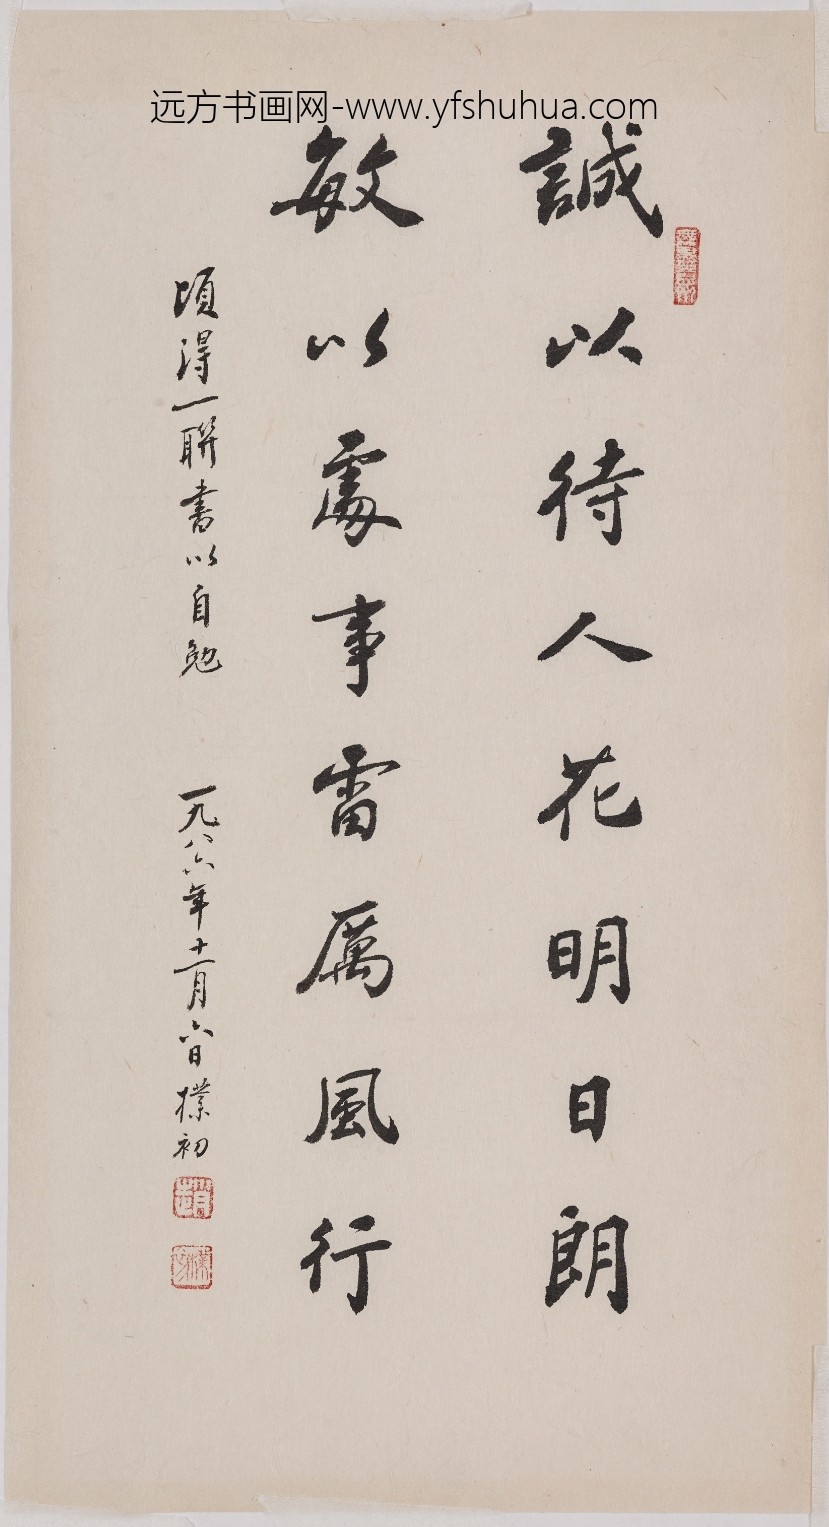 远方书画网-www.yfshuhua.com
誠以待人花明日朗
敏以處事雷厲風行
頃得一聯書以自勉
一九八六年十一月六日樸初
趙
樸初